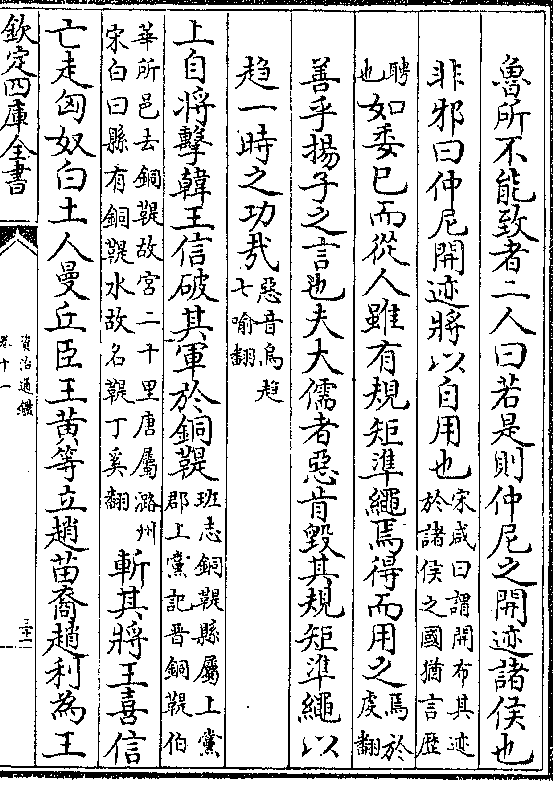 魯所不能致者二人曰若是則仲尼之開迹諸侯也
非邪曰仲尼開迹將以自用也宋咸曰謂開布其迹
於諸侯之國猶言歷
聘
也如委已而從人雖有規矩準繩焉得而用之焉於
虔翻
善乎揚子之言也夫大儒者惡肯毀其規矩準繩以
趨一時之功哉惡音烏趨
七喻翻
上自將擊韓王信破其軍於銅鞮班志銅鞮縣屬上黨
郡上黨記晉銅鞮伯
華所邑去銅鞮故宮二十里唐屬潞州
宋白曰縣有銅鞮水故名鞮丁奚翻斬其將王喜信
亡走匈奴白土人曼丘臣王黃等立趙苗裔趙利為王
欽定四庫全書
資治通鑑
卷十一
三十二